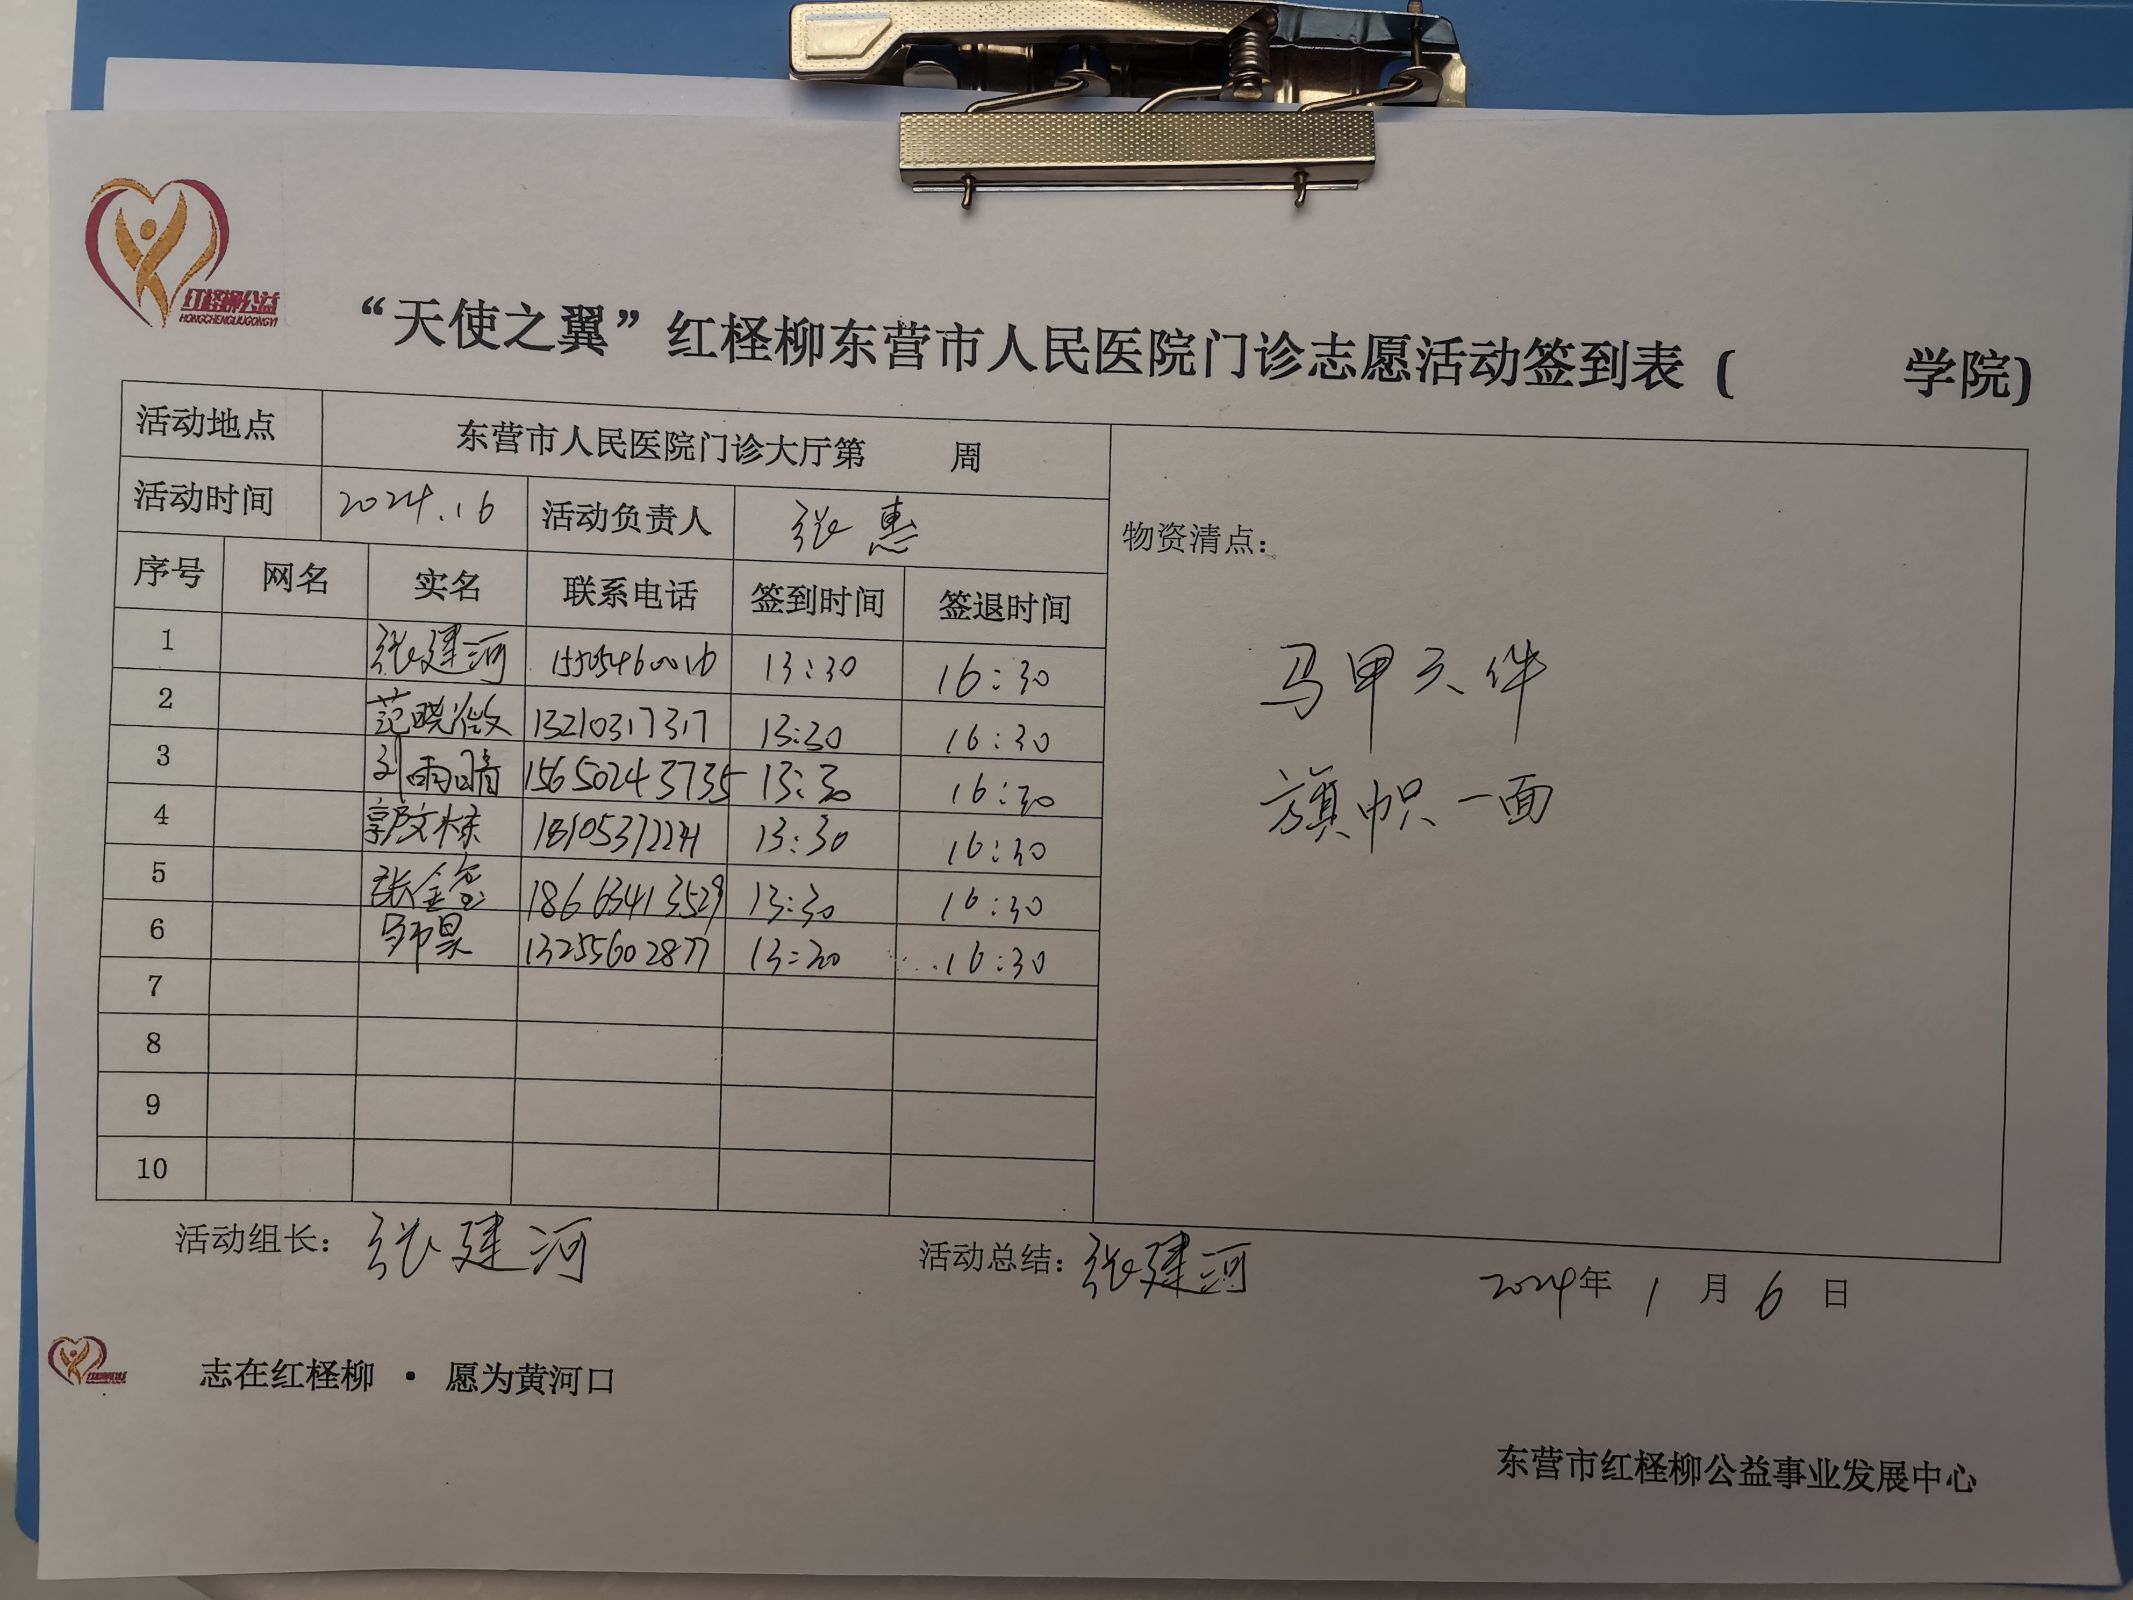 红柽柳公益
HONGCHENGLIUGONGYI
“天使之翼”红柽柳东营市人民医院门诊志愿活动签到表（ 学院)
活动地点 东营市人民医院门诊大厅第 周
活动时间 2024.1 6 活动负责人 张惠
物资清点：
序号 网名 实名 联系电话 签到时间 签退时间
1 张建河 13:30 16:30
2 范晓微 13210317317 13:30 16:30
3 刘雨晴 15650243735 13:30 16:30
4 郭文栋 13:30 16:30
5 张金 18663413529 13:30 16:30
6 昊 13255602877 13:30 16:30
7
8
9
10
马甲 件
旗帜一面
活动组长：张建河 活动总结：张建河 2024年 1 月 6 日
志在红柽柳 · 愿为黄河口
东营市红柽柳公益事业发展中心